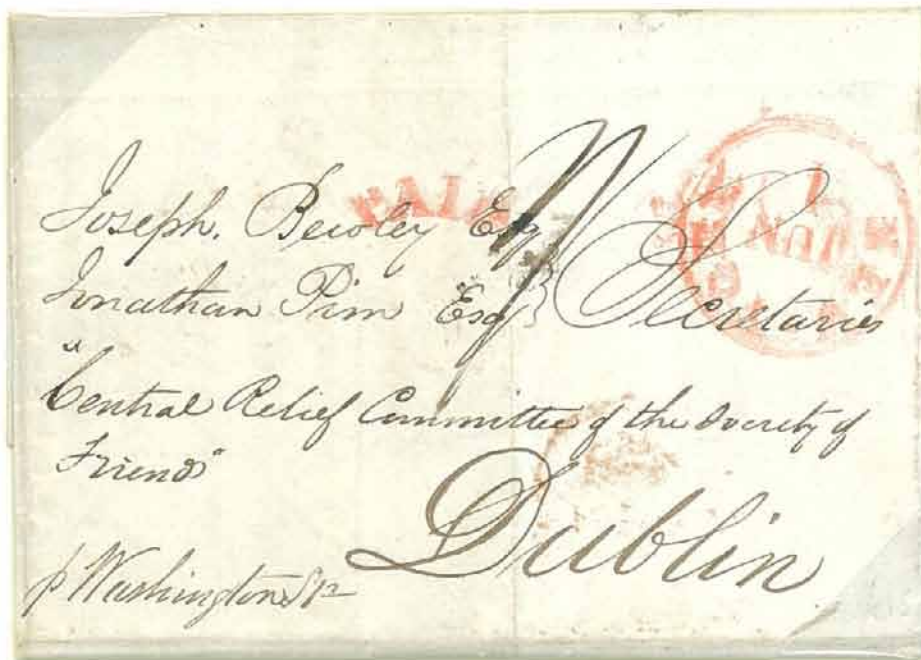 PAID
Joseph. Bewley Esq
Jonathan Pim Esq } Secretaries
"Central Relief Committee of the Society of
Friends"
Dublin
p Washington